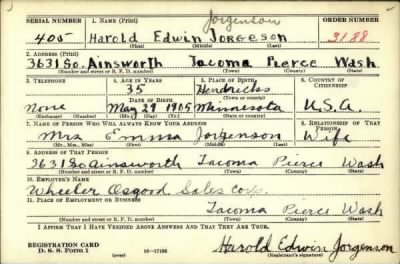 Jorgenson
SERIAL NUMBER 1. NAME (Print) ORDER NUMBER
405 Harold Edwin Jorgeson 3188
(First) (Middle) (Last)
2. ADDRESS (Print)
3631 So. Ainsworth Tacoma Pierce Wash
(Number and street or R. F. D. number) (Town) (County) (State)
3. TELEPHONE 4. AGE IN YEARS 5. PLACE OF BIRTH 6. COUNTRY OF CITIZENSHIP
35 Hendricks
(Town or county)
DATE OF BIRTH
None May 29 1905 Minnesota U.S.A.
(Exchange) (Number) (Mo.) (Day) (Yr.) (State or country)
7. NAME OF PERSON WHO WILL ALWAYS KNOW YOUR ADDRESS 8. RELATIONSHIP OF THAT PERSON
Mrs Emma Jorgenson Wife
(Mr., Mrs., Miss) (First) (Middle) (Last)
9. ADDRESS OF THAT PERSON
3631 So Ainsworth Tacoma Pierce Wash
(Number and street or R. F. D. number) (Town) (County) (State)
10. EMPLOYER'S NAME
Wheeler Osgood Sales Corp.
11. PLACE OF EMPLOYMENT OR BUSINESS
Tacoma Pierce Wash
(Number and street or R. F. D. number) (Town) (County) (State)
I AFFIRM THAT I HAVE VERIFIED ABOVE ANSWERS AND THAT THEY ARE TRUE.
REGISTRATION CARD
D. S. S. Form 1 16-17105 Harold Edwin Jorgenson
(Registrant's signature)